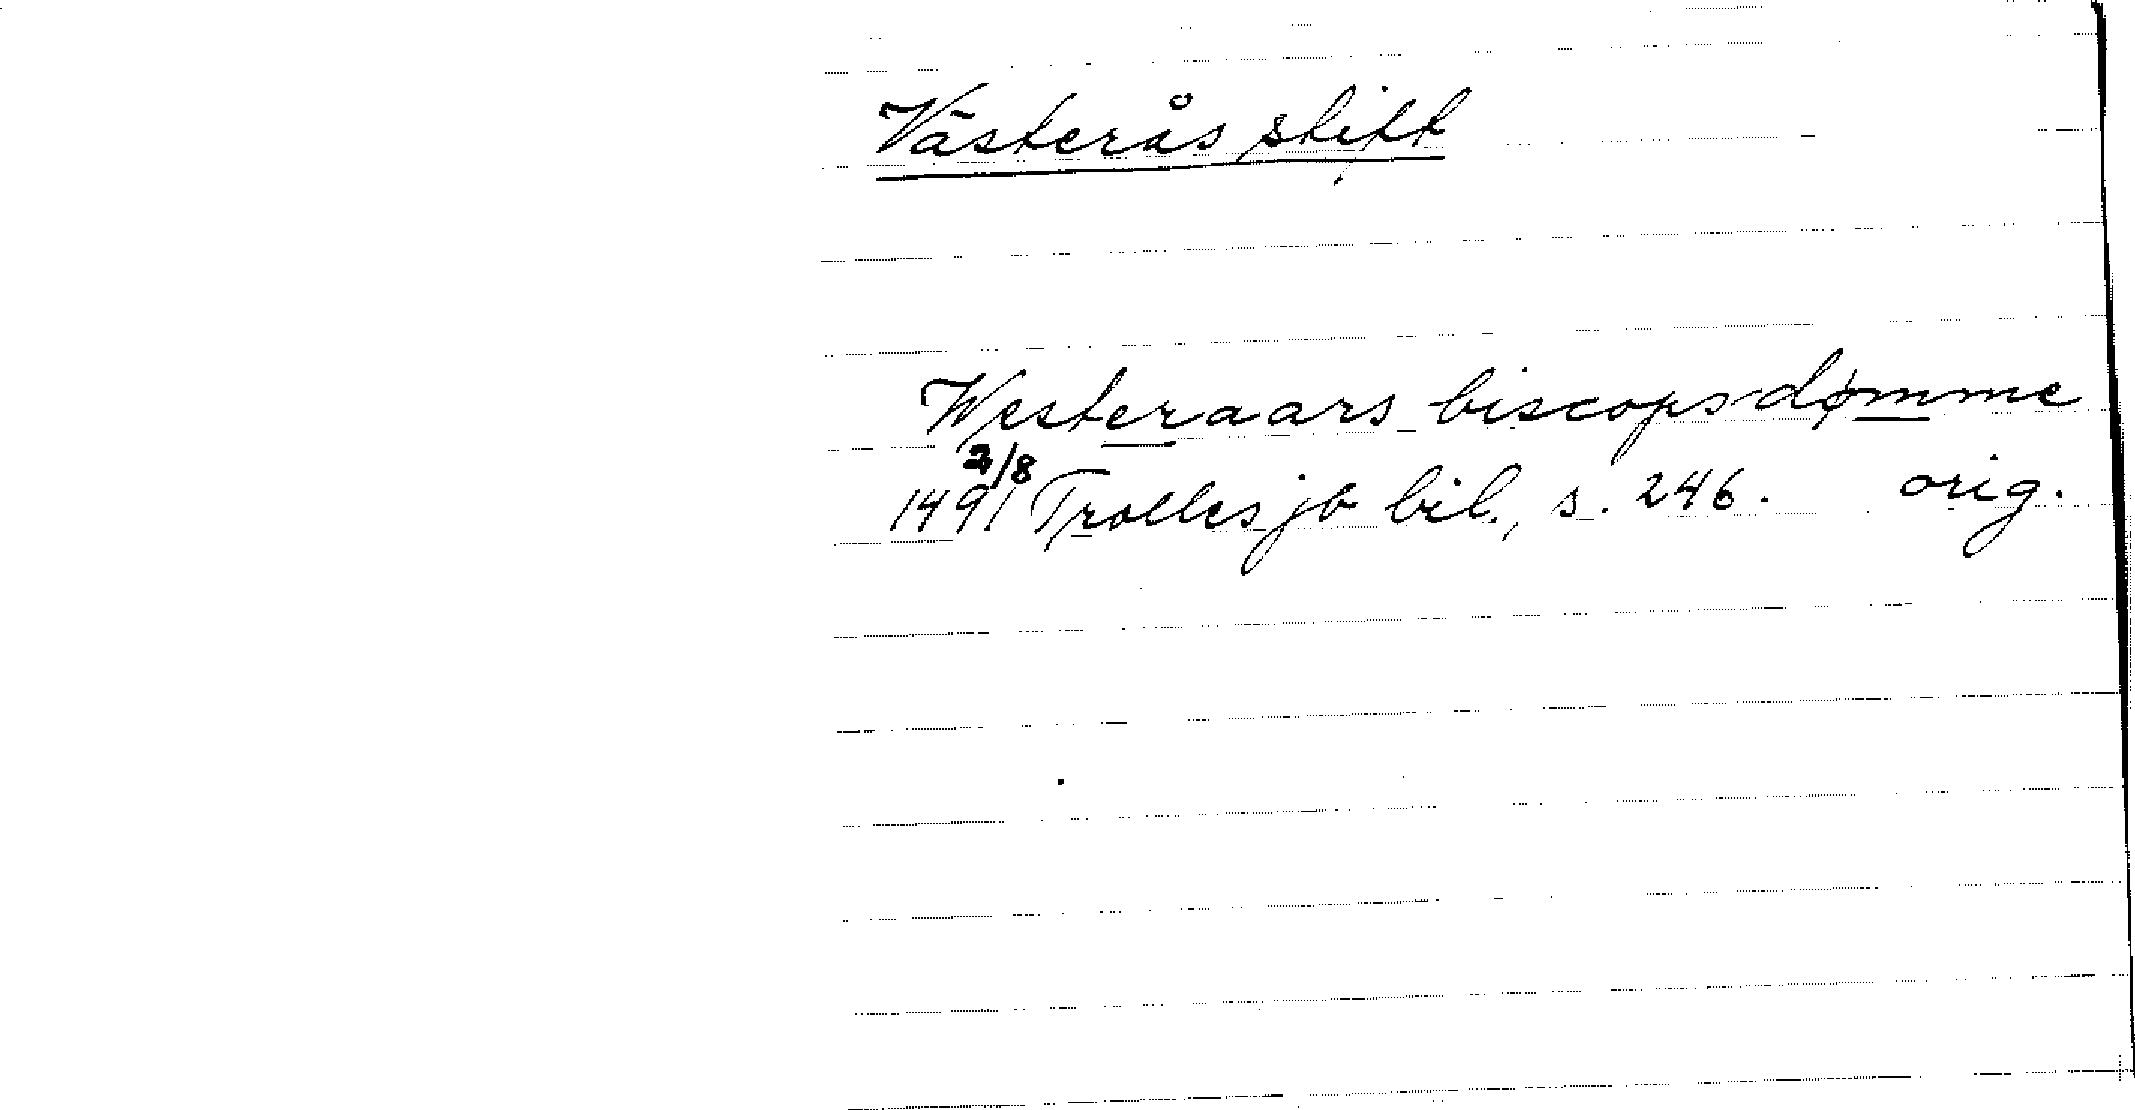 Västerås stift
Westeraars biscopsdømme
1491 3/8 Trolles jb bil., s. 246. orig.